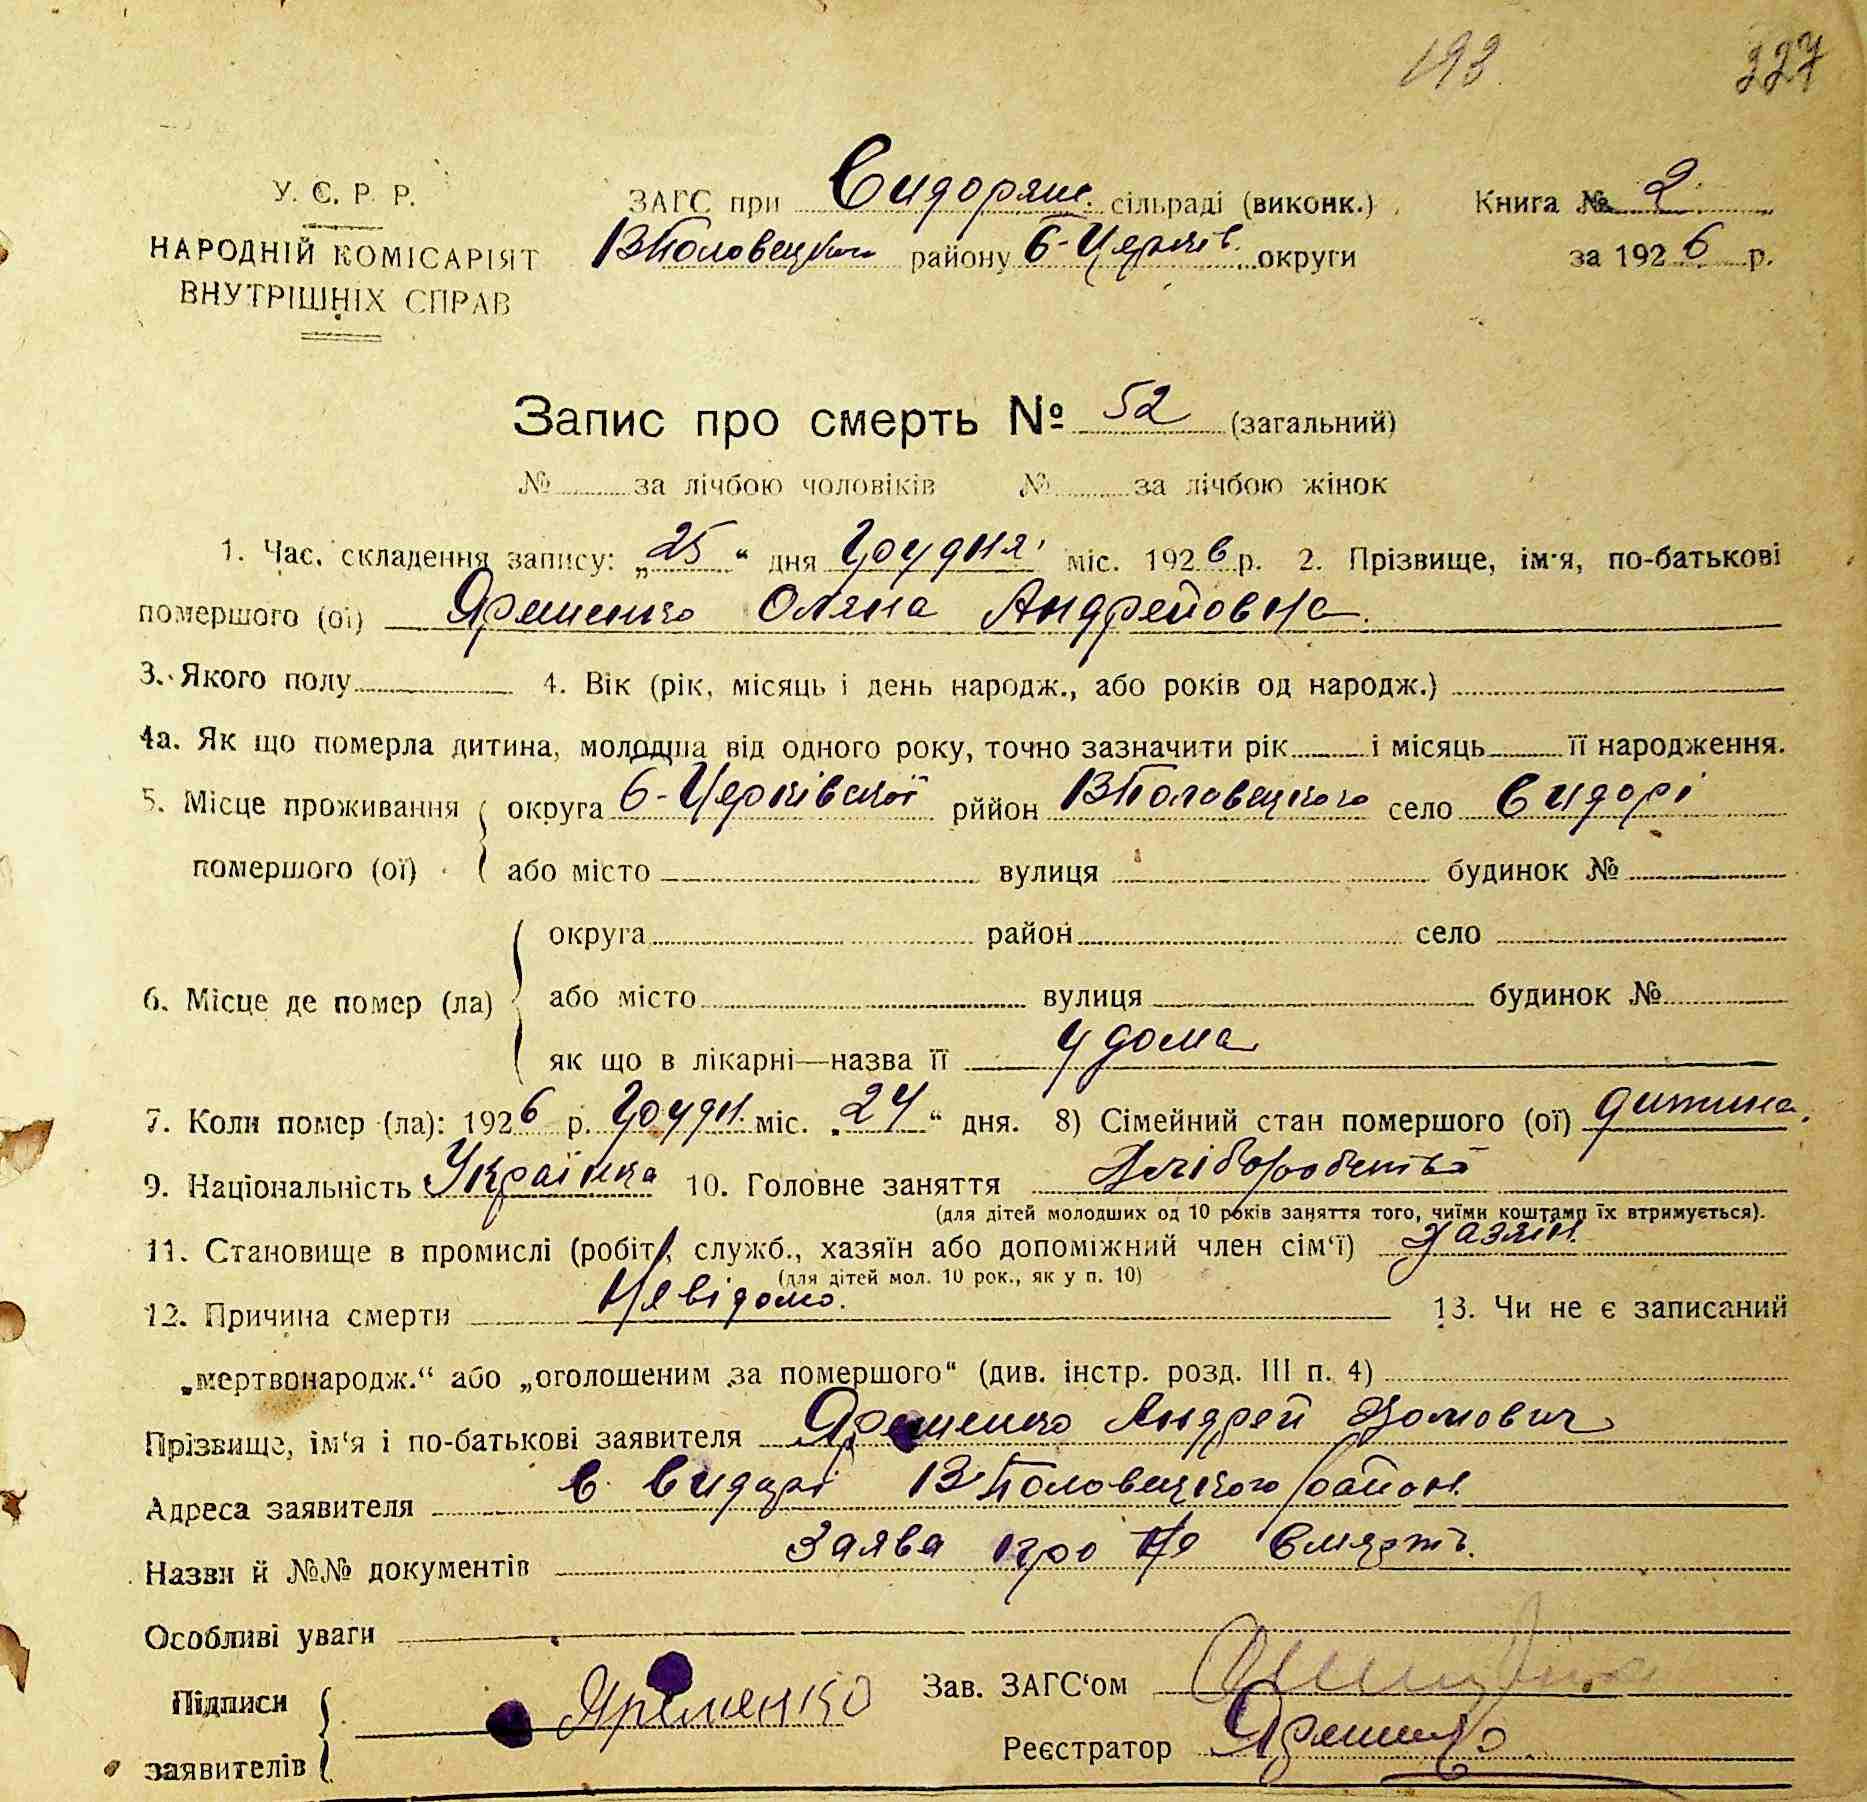 193 327
У. С. Р. Р. ЗАГС при Сидорян. сільраді (виконк.) Книга № 2
НАРОДНІЙ КОМІСАРІЯТ ВПоловецьког району Б-Церків. округи за 1926 р.
ВНУТРІШНІХ СПРАВ
Запис про смерть № 52 (загальний)
№ за лічбою чоловіків № за лічбою жінок
1. Час. складення запису: „25“ дня Грудня міс. 1926 р. 2. Прізвище, ім'я, по-батькові
помершого (ої) Яременко Оляна Андрейовна.
3. Якого полу 4. Вік (рік, місяць і день народж., або років од народж.)
4а. Як що померла дитина, молодша від одного року, точно зазначити рік і місяць її народження.
5. Місце проживання округа Б-Церківської рййон ВПоловецького село Сидорі
помершого (ої) або місто вулиця будинок №
округа район село
6. Місце де помер (ла) або місто вулиця будинок №
як що в лікарні—назва її У дома
7. Коли помер (ла): 1926 р. Грудн. міс. „24“ дня. 8) Сімейний стан помершого (ої) дитина.
9. Національність Українка 10. Головне заняття Хліборобство
(для дітей молодших од 10 років заняття того, чиїми коштами їх втримується).
11. Становище в промислі (робіт., служб., хазяїн або допоміжний член сім'ї) хазяїн.
(для дітей мол. 10 рок., як у п. 10)
12. Причина смерти Невідомо. 13. Чи не є записаний
„мертвонародж.“ або „оголошеним за помершого“ (див. інстр. розд. III п. 4)
Прізвище, ім'я і по-батькові заявителя Яременко Андрей Хомович
Адреса заявителя с. Сидорі ВПоловецького район.
Назви й №№ документів Заява про це смерть.
Особливі уваги
Підписи Яременко Зав. ЗАГС'ом
заявителів Реєстратор Яременко